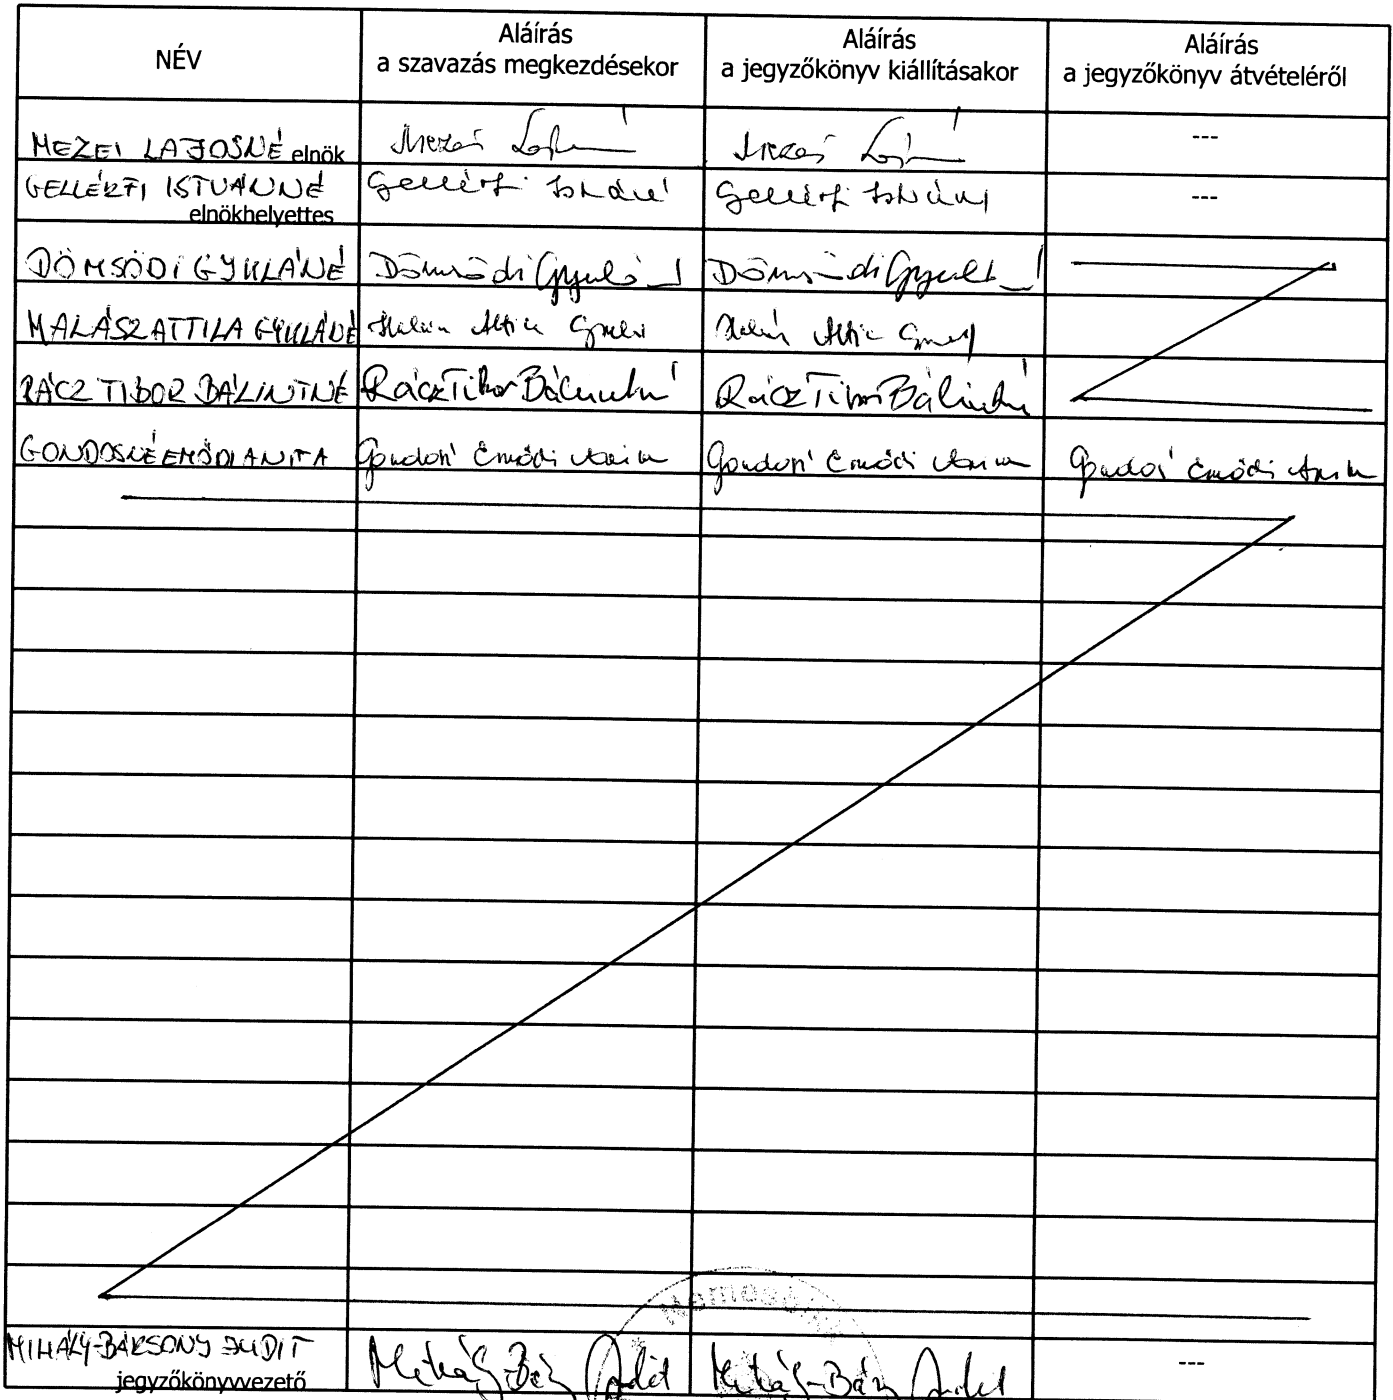 NÉV
Aláírás
a szavazás megkezdésekor
Aláírás
a jegyzőkönyv kiállításakor
Aláírás
a jegyzőkönyv átvételéről
MEZEI LAJOSNÉ elnök
Mezei Lajosné
Mezei Lajosné
---
GELLÉRFI ISTVÁNNÉ
elnökhelyettes
Gellérfi Istvánné
Gellérfi Istvánné
---
DÖMSÖDI GYULÁNÉ
Dömsödi Gyuláné
Dömsödi Gyuláné
MALÁSZ ATTILA GYULÁNÉ
RÁCZ TIBOR BÁLINTNÉ
Rácz Tibor Bálintné
Rácz Tibor Bálintné
GONDOSNÉ EMŐDI ANITA
Gondosné Emődi Anita
Gondosné Emődi Anita
Gondosné Emődi Anita
MIHÁLY-BAKSONY JUDIT
jegyzőkönyvvezető
---